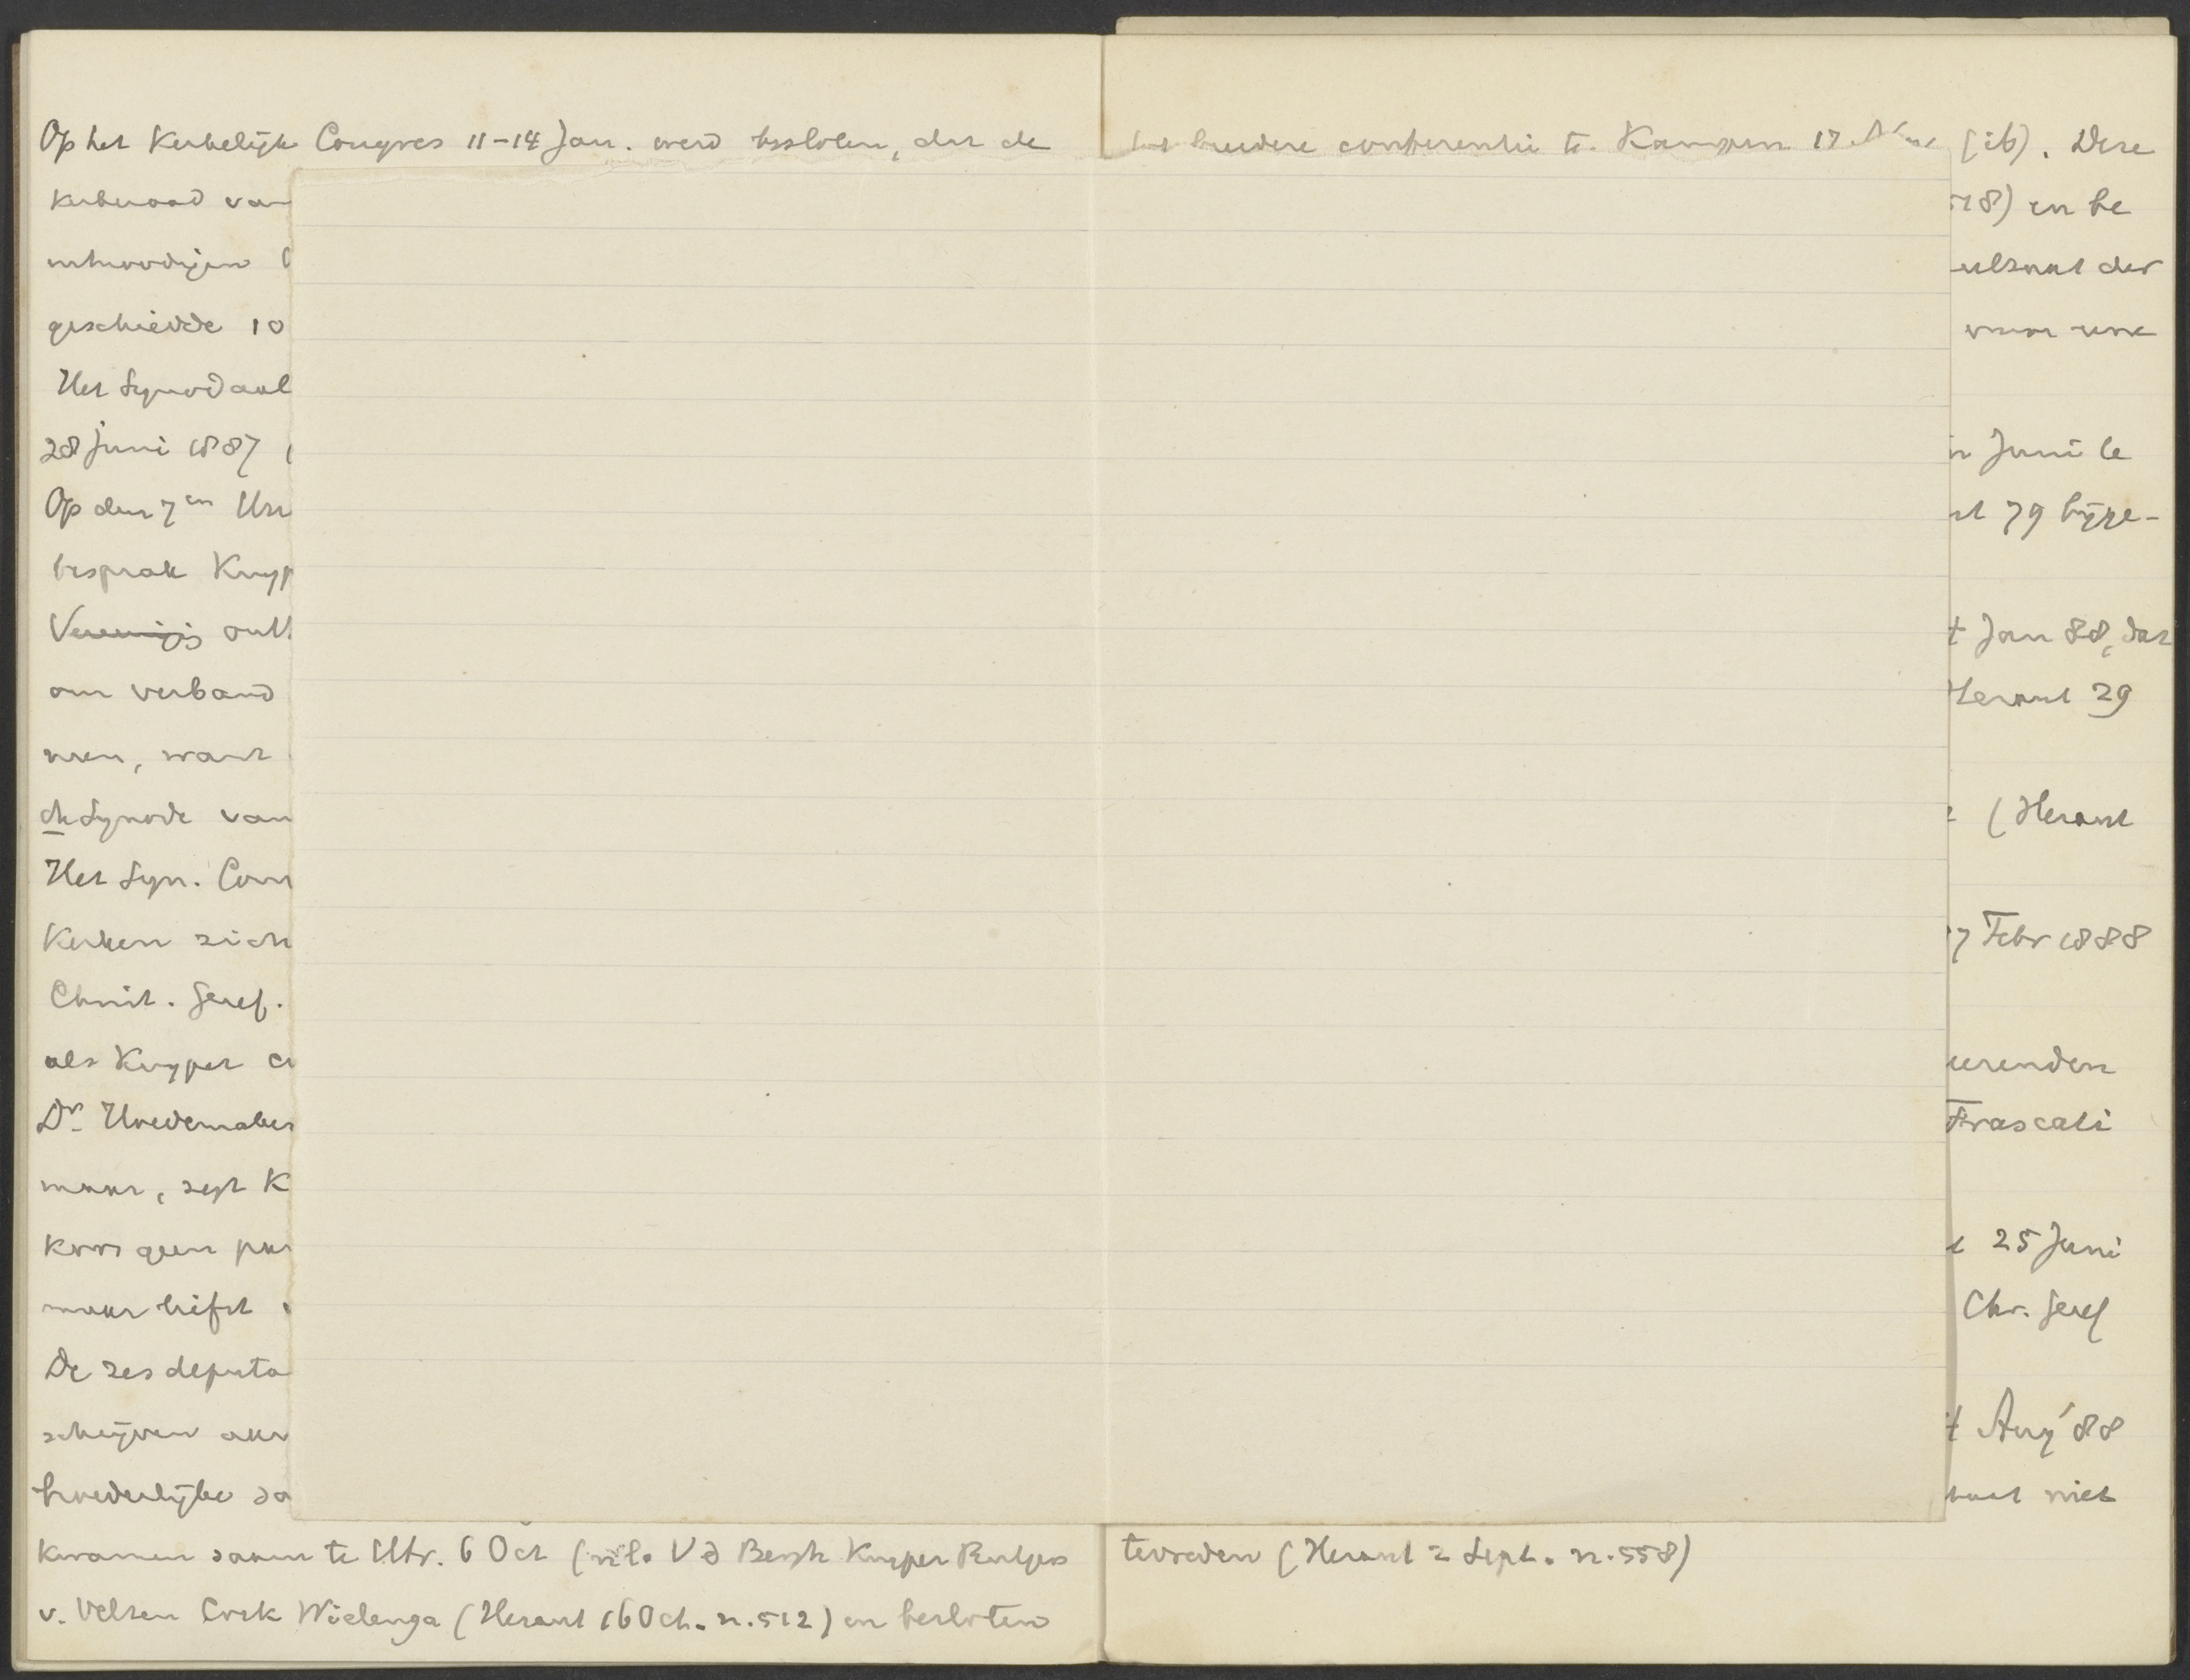 Op het Kerkelijk Congres 11-14 Jan. werd besloten, dat de
kerkeraad van
geschiedde 10
Het Synodaal
28 Juni 1887 (
Op den 7en
besprak Kuyp
Vereenigig
om verband
men, want
de Synode van
Het Syn. Com
Kerken zich
Christ. Geref.
als Kuyper
Dr. Hoedemaker
maar, zegt K
koos geen
maar heeft
De zes deputa
schrijven aan
broederlijke sa
kwamen samen te Utr. 6 Oct (nl. V d Bergh Kuyper Rutgers
v. Velzen Cork Wielenga (Heraut 16 Oct. n. 512) en besloten
tot breedere conferentie te Kampen 17 Nov (ib). Deze
518) en be
resultaat der
voor
n Juni te
st 79 bijge-
t Jan 88, dat
Heraut 29
(Heraut
7 Febr 1888
eerenden
Frascati
25 Juni
Chr. Geref
t Aug '88
niet
tevreden (Heraut 2 Sept. n. 558)